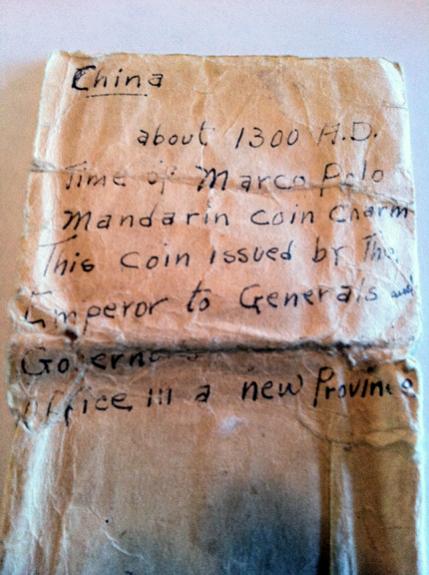 China
about 1300 A.D.
Time of Marco Polo
Mandarin Coin Charm
This coin issued by The
Emperor to Generals and
Governors
office in a new Province